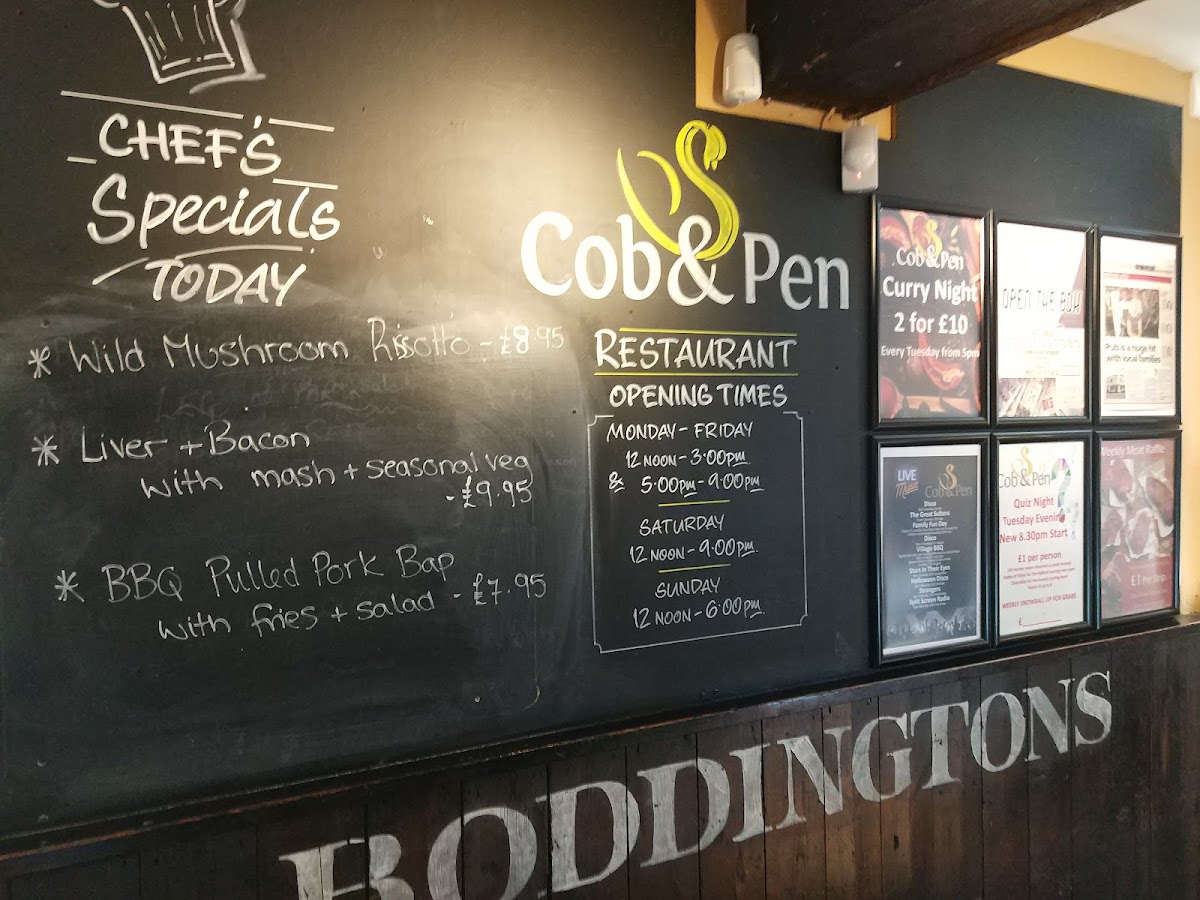 CHEF'S
Specials
TODAY
* Wild Mushroom Rissotto - £8.95
* Liver + Bacon
with mash + seasonal veg
- £9.95
* BBQ Pulled Pork Bap
with fries + salad - £7.95
Cob & Pen
RESTAURANT
OPENING TIMES
MONDAY - FRIDAY
12 NOON - 3:00pm
& 5:00pm - 9:00pm
SATURDAY
12 NOON - 9:00pm.
SUNDAY
12 NOON - 6:00pm.
Cob & Pen
Curry Night
2 for £10
Every Tuesday from 5pm
OPEN THE BOX
Pub is a huge hit
with local families
LIVE
Music
Cob & Pen
Disco
The Great Sultans
Family Fun Day
Disco
Village BBQ
Stars in Their Eyes
Halloween Disco
Strangers
Split Screen Radio
Cob & Pen
Quiz Night
Tuesday Evening
New 8.30pm Start
£1 per person
WEEKLY SNOWBALL UP FOR GRABS
£
Weekly Meat Raffle
£1 Per Strip
BODDINGTONS